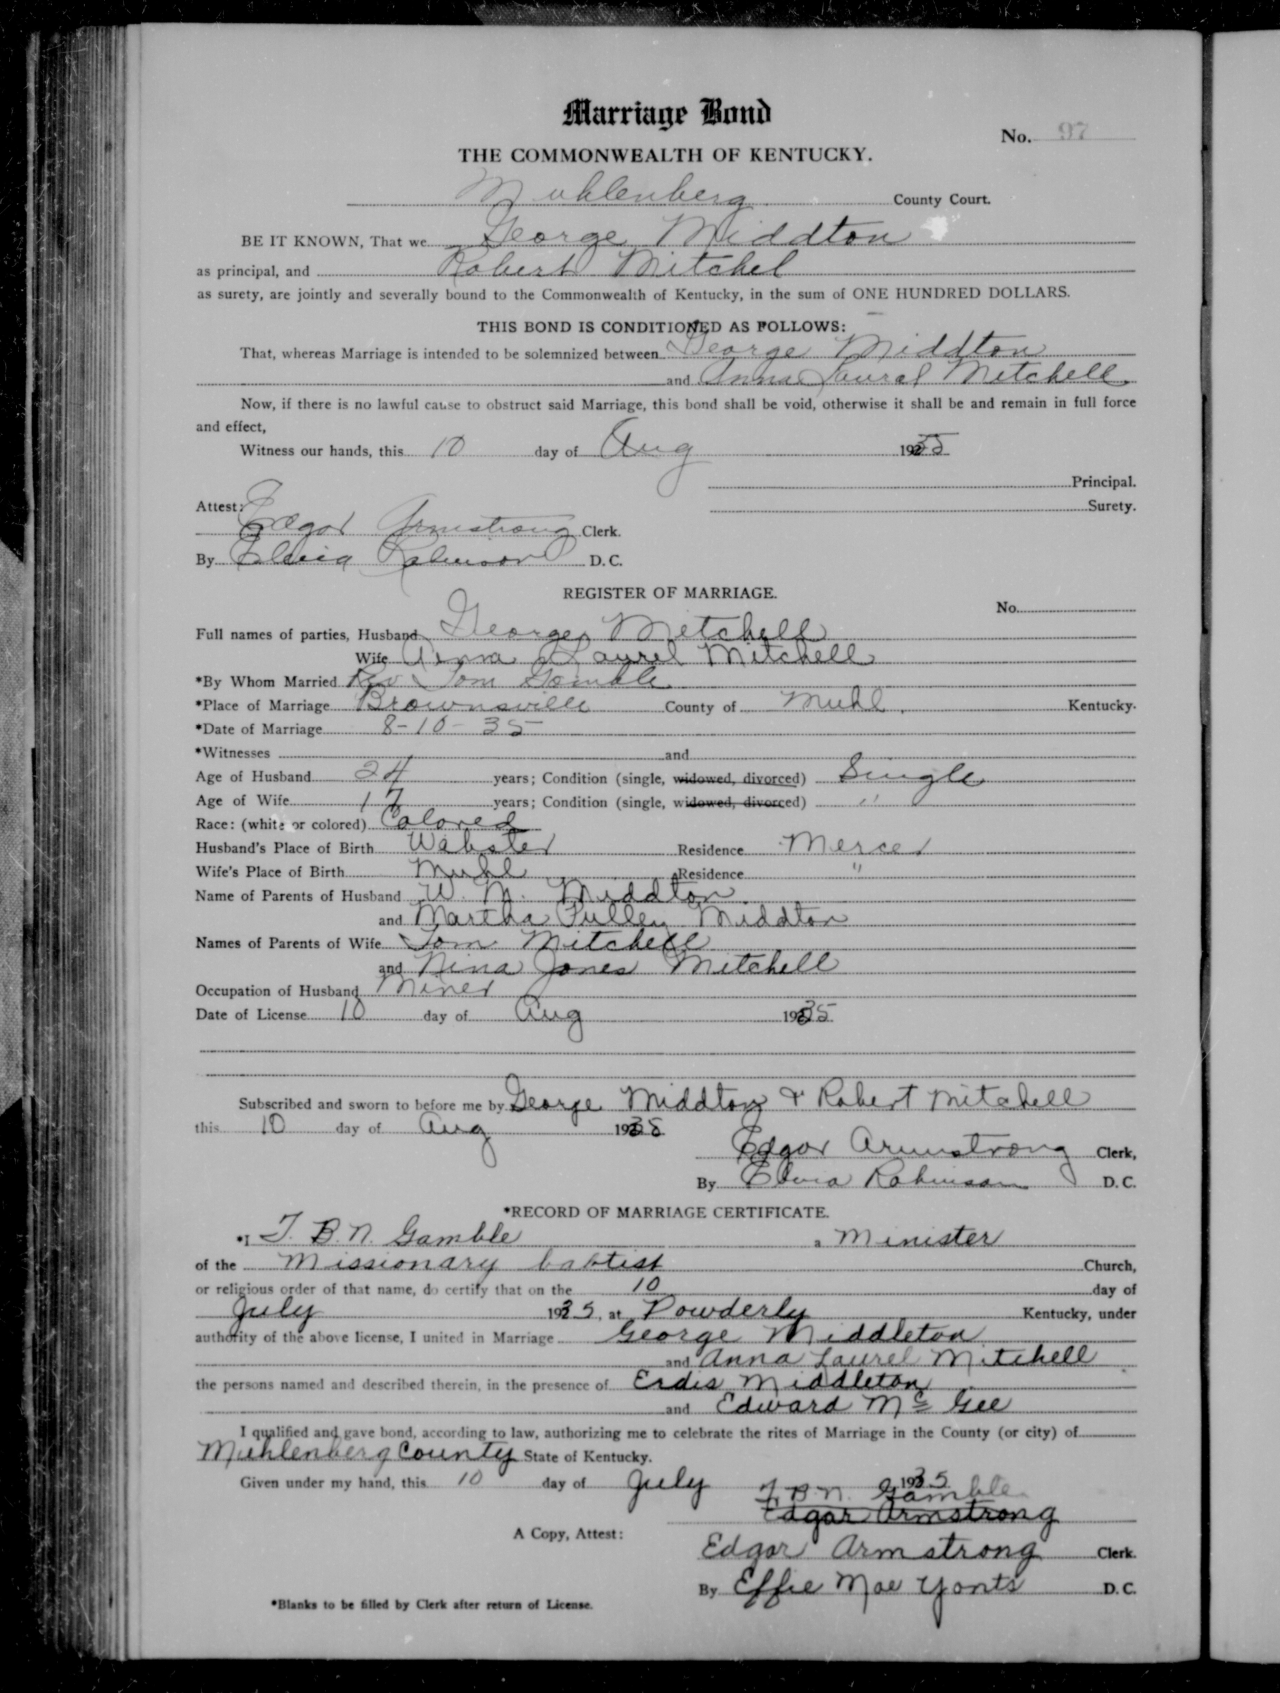 Marriage Bond
No. 97
THE COMMONWEALTH OF KENTUCKY.
Muhlenberg County Court.
BE IT KNOWN, That we George Middton
as principal, and Robert Mitchel
as surety, are jointly and severally bound to the Commonwealth of Kentucky, in the sum of ONE HUNDRED DOLLARS.
THIS BOND IS CONDITIONED AS FOLLOWS:
That, whereas Marriage is intended to be solemnized between George Middton
and Anna Laurel Mitchell
Now, if there is no lawful cause to obstruct said Marriage, this bond shall be void, otherwise it shall be and remain in full force
and effect,
Witness our hands, this 10 day of Aug 1935
Principal.
Attest: Surety.
Edgar Armstrong Clerk.
By Elvia Robinson D. C.
REGISTER OF MARRIAGE.
No.
Full names of parties, Husband George Mitchell
Wife Anna Laurel Mitchell
*By Whom Married Rev Tom Gamble
*Place of Marriage Brownsville County of Muhl. Kentucky.
*Date of Marriage 8-10-35
*Witnesses and
Age of Husband 24 years; Condition (single, widowed, divorced) Single
Age of Wife 17 years; Condition (single, widowed, divorced) "
Race: (white or colored) Colored
Husband's Place of Birth Webster Residence Mercer
Wife's Place of Birth Muhl Residence "
Name of Parents of Husband W. M. Middton
and Martha Pulley Middton
Names of Parents of Wife Tom Mitchell
and Nina Jones Mitchell
Occupation of Husband Miner
Date of License 10 day of Aug 1935
Subscribed and sworn to before me by George Middton & Robert Mitchell
this 10 day of Aug 1935
Edgar Armstrong Clerk,
By Elvia Robinson D. C.
*RECORD OF MARRIAGE CERTIFICATE.
*I T. B. N. Gamble a Minister
of the Missionary babtist Church,
or religious order of that name, do certify that on the 10 day of
July 1935, at Powderly Kentucky, under
authority of the above license, I united in Marriage George Middleton
and Anna Laurel Mitchell
the persons named and described therein, in the presence of Erdis Middleton
and Edward Mc Gee
I qualified and gave bond, according to law, authorizing me to celebrate the rites of Marriage in the County (or city) of
Muhlenberg County State of Kentucky.
Given under my hand, this 10 day of July 1935
T. B. N. Gamble
Edgar Armstrong
A Copy, Attest:
Edgar Armstrong Clerk.
By Effie Mae Yonts D. C.
*Blanks to be filled by Clerk after return of License.